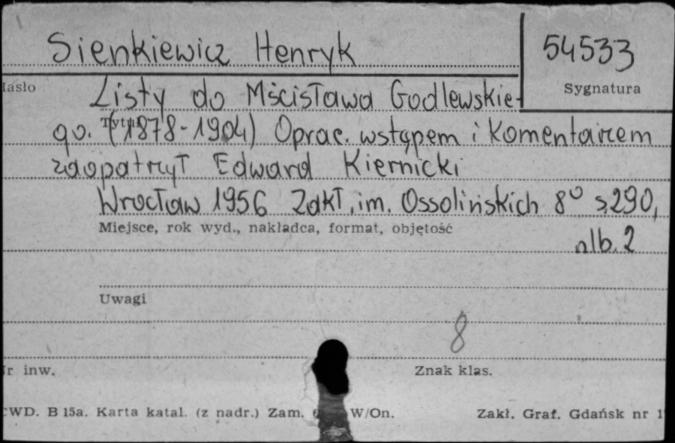 Sienkiewicz Henryk
54533
Sygnatura
Hasło
Listy do Mścisława Godlewskie-
Tytuł
go. (1878-1904) Oprac. wstępem i komentarzem
zaopatrzył Edward Kiernicki
Wrocław 1956 Zakł. im. Ossolińskich 8° s 290,
Miejsce, rok wyd., nakładca, format, objętość
nlb. 2
Uwagi
8
Nr inw.
Znak klas.
CWD. B 15a. Karta katal. (z nadr.) Zam. W/On.
Zakł. Graf. Gdańsk nr 1